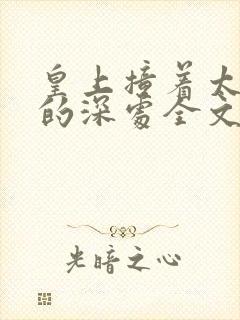 皇上撞着太
的深处全文
光暗之心